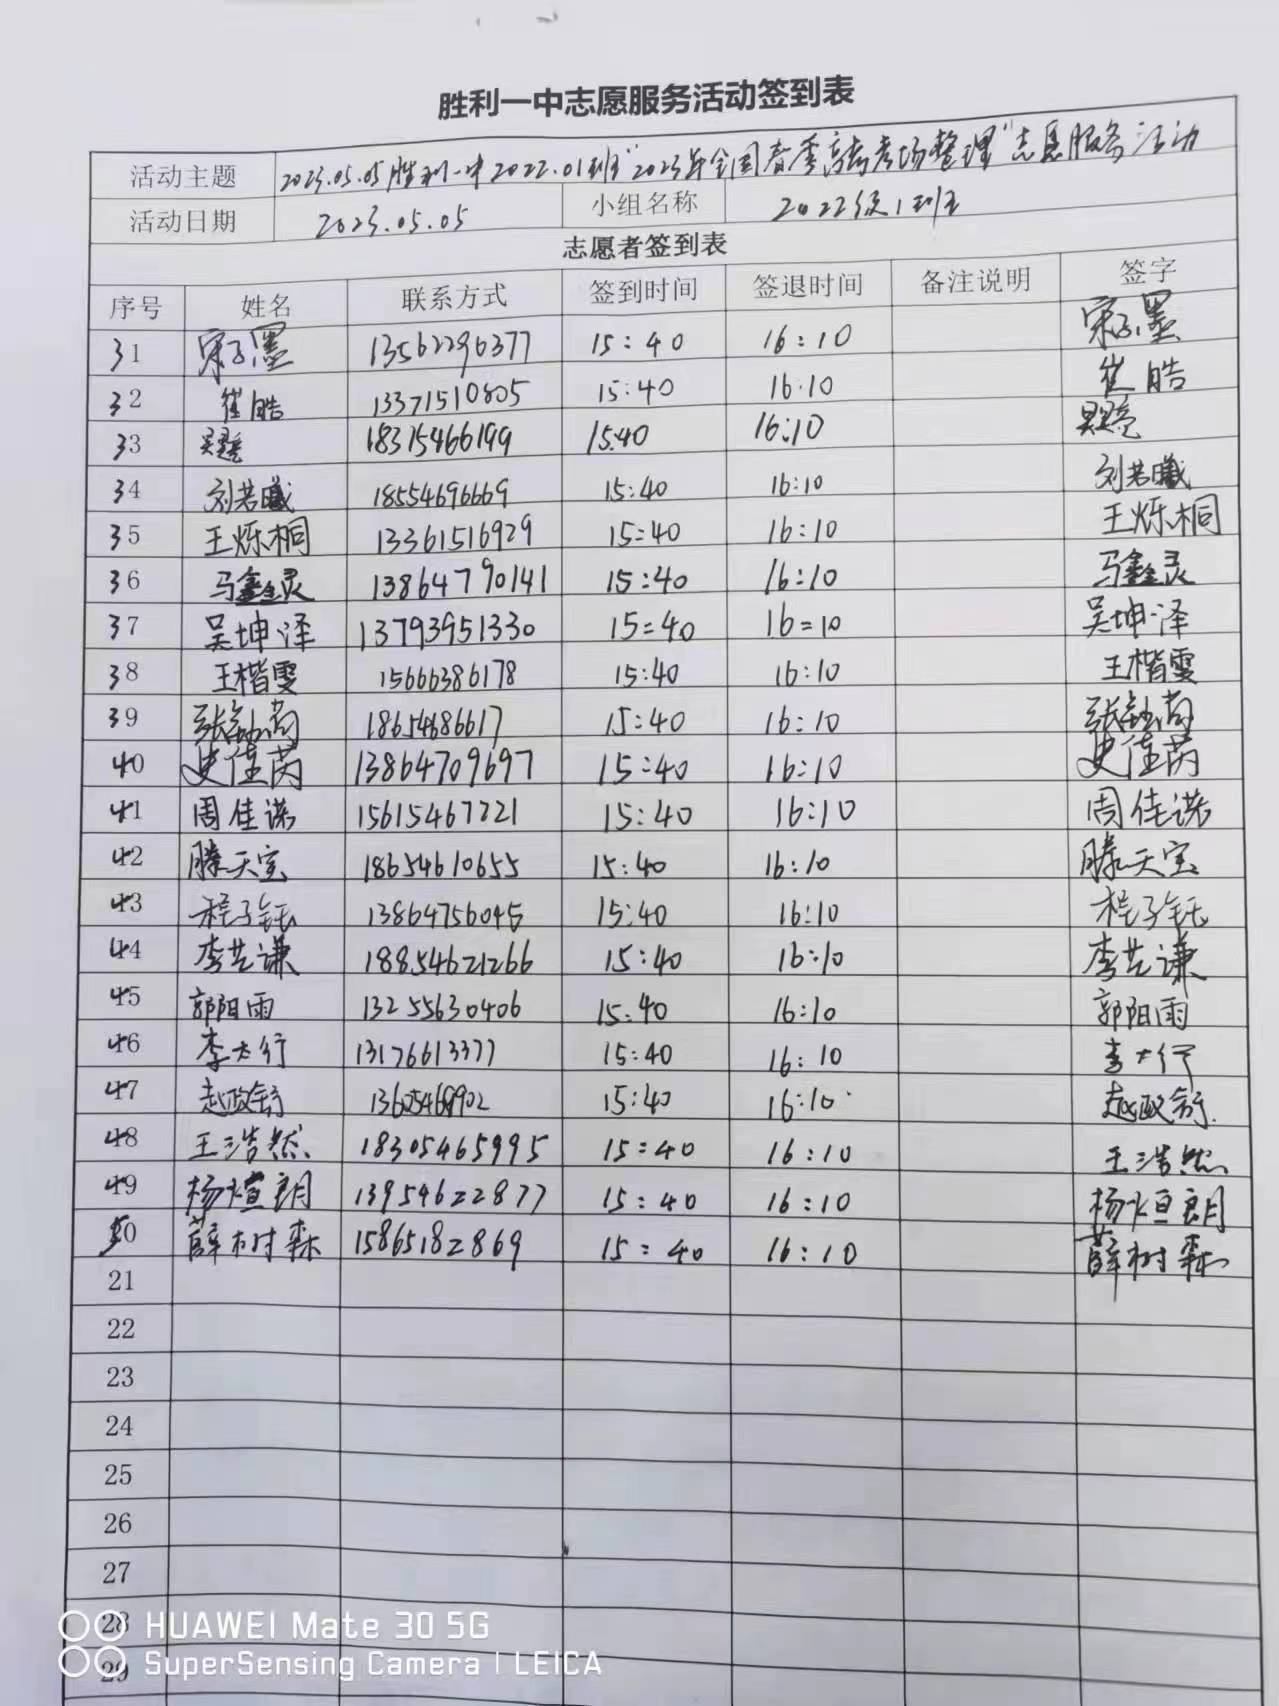 胜利一中志愿服务活动签到表
活动主题 2023.05.05胜利一中2022.01班"2023年全国春季高考考场整理"志愿服务活动
活动日期 2023.05.05 小组名称 2022级1班
志愿者签到表
序号 姓名 联系方式 签到时间 签退时间 备注说明 签字
31 宋子墨 13562296377 15:40 16:10 宋子墨
32 崔皓 13371510805 15:40 16:10 崔皓
33 18315466199 15:40 16:10
34 刘若曦 18554696669 15:40 16:10 刘若曦
35 王烁桐 13361516929 15:40 16:10 王烁桐
36 马鑫灵 13864790141 15:40 16:10 马鑫灵
37 吴坤泽 13793951330 15:40 16:10 吴坤泽
38 王楷雯 15666386178 15:40 16:10 王楷雯
39 18654686617 15:40 16:10
40 史佳芮 13864709697 15:40 16:10 史佳芮
41 周佳诺 15615467221 15:40 16:10 周佳诺
42 滕天宝 18654610655 15:40 16:10 滕天宝
43 程子钰 13864756045 15:40 16:10 程子钰
44 李芑谦 18854621266 15:40 16:10 李芑谦
45 郭阳雨 13255630406 15:40 16:10 郭阳雨
46 李大行 13176613377 15:40 16:10 李大行
47 赵政舒 15:40 16:10 赵政舒
48 王浩然 18305465995 15:40 16:10 王浩然
49 杨煊朗 13954622877 15:40 16:10 杨煊朗
50 薛树森 15865182869 15:40 16:10 薛树森
21
22
23
24
25
26
27
28
29
HUAWEI Mate 30 5G
SuperSensing Camera | LEICA